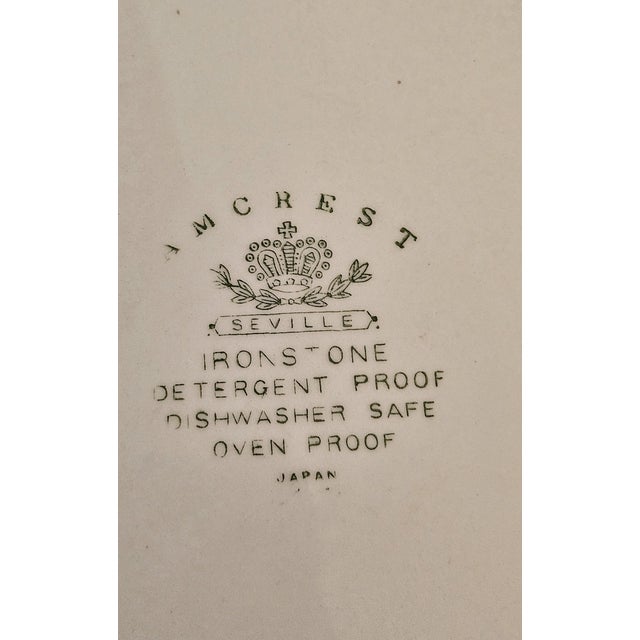 AMCREST
SEVILLE
IRONSTONE
DETERGENT PROOF
DISHWASHER SAFE
OVEN PROOF
JAPAN